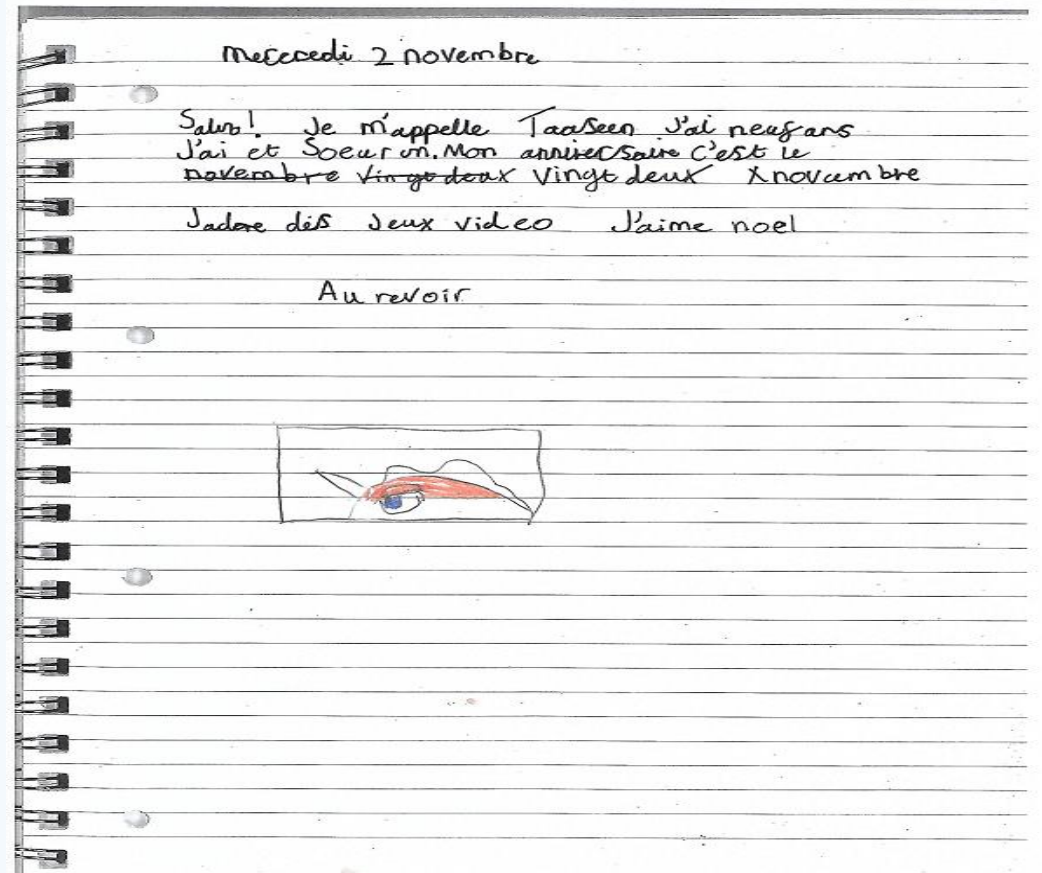 Mercredi 2 novembre
Salut! Je m'appelle Taaseen J'ai neuf ans
J'ai et Soeur un. Mon anniversaire c'est le
novembre vingt deux vingt deux novembre
J'adore des Jeux video J'aime noel
Au revoir